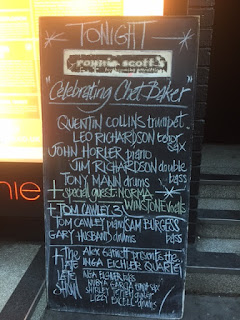 TONIGHT
ronnie scott's
"Celebrating Chet Baker"
QUENTIN COLLINS trumpet
LEO RICHARDSON tenor sax
JOHN HORLER piano
JIM RICHARDSON double bass
TONY MANN drums
+ special guest NORMA WINSTONE vocals
+ TOM CAWLEY 3
TOM CAWLEY piano SAM BURGESS bass
GARY HUSBAND drums
+ The late late show
Alex Garnett presents the
INGA EICHLER QUARTET
INGA EICHLER bass
NUBYA GARCIA
SHIRLEY
LIZZY EXELL drums
nie